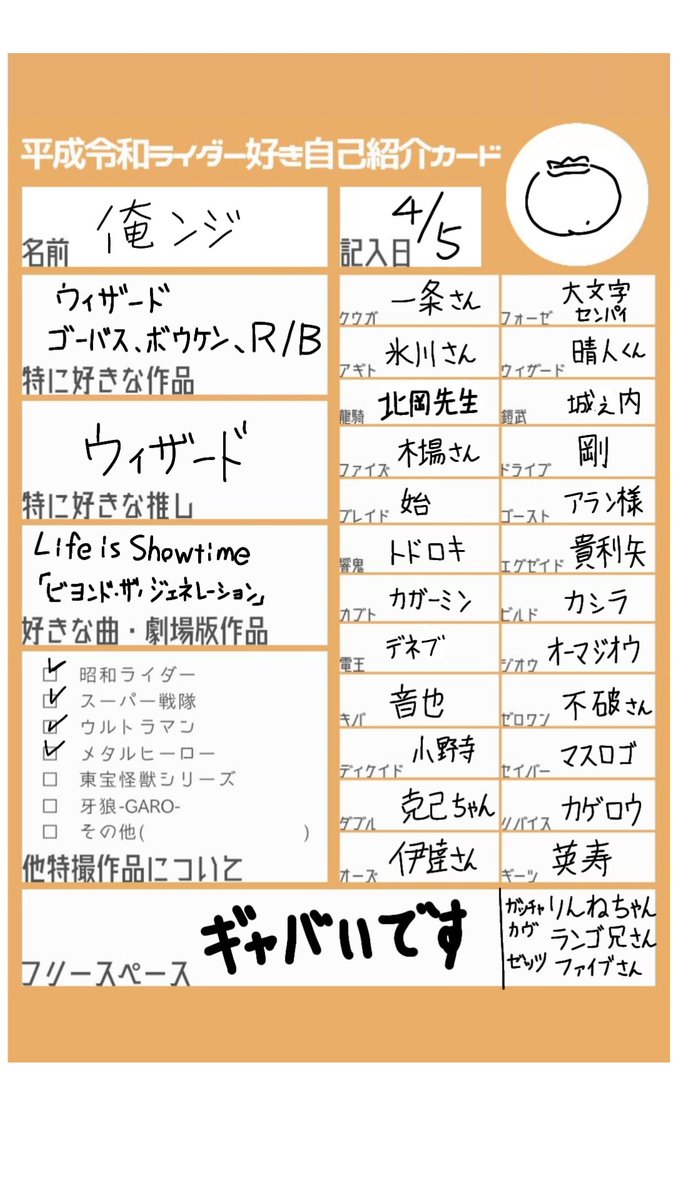 平成令和ライダー好き自己紹介カード
俺ンジ
名前
4/5
記入日
ウィザード
ゴーバス、ボウケン、R/B
特に好きな作品
ウィザード
特に好きな推し
Life is Showtime
「ビヨンド・ザ・ジェネレーション」
好きな曲・劇場版作品
昭和ライダー
スーパー戦隊
ウルトラマン
メタルヒーロー
東宝怪獣シリーズ
牙狼-GARO-
その他( )
他特撮作品について
クウガ 一条さん
アギト 氷川さん
龍騎 北岡先生
ファイズ 木場さん
ブレイド 始
響鬼 トドロキ
カブト カガーミン
電王 デネブ
キバ 音也
ディケイド 小野寺
ダブル 克己ちゃん
オーズ 伊達さん
フォーゼ 大文字
センパイ
ウィザード 晴人くん
鎧武 城之内
ドライブ 剛
ゴースト アラン様
エグゼイド 貴利矢
ビルド カシラ
ジオウ オーマジオウ
ゼロワン 不破さん
セイバー マスロゴ
リバイス カゲロウ
ギーツ 英寿
フリースペース
ギャバいです
ガッチャ りんねちゃん
カヴ ランゴ兄さん
ゼッツ ファイブさん